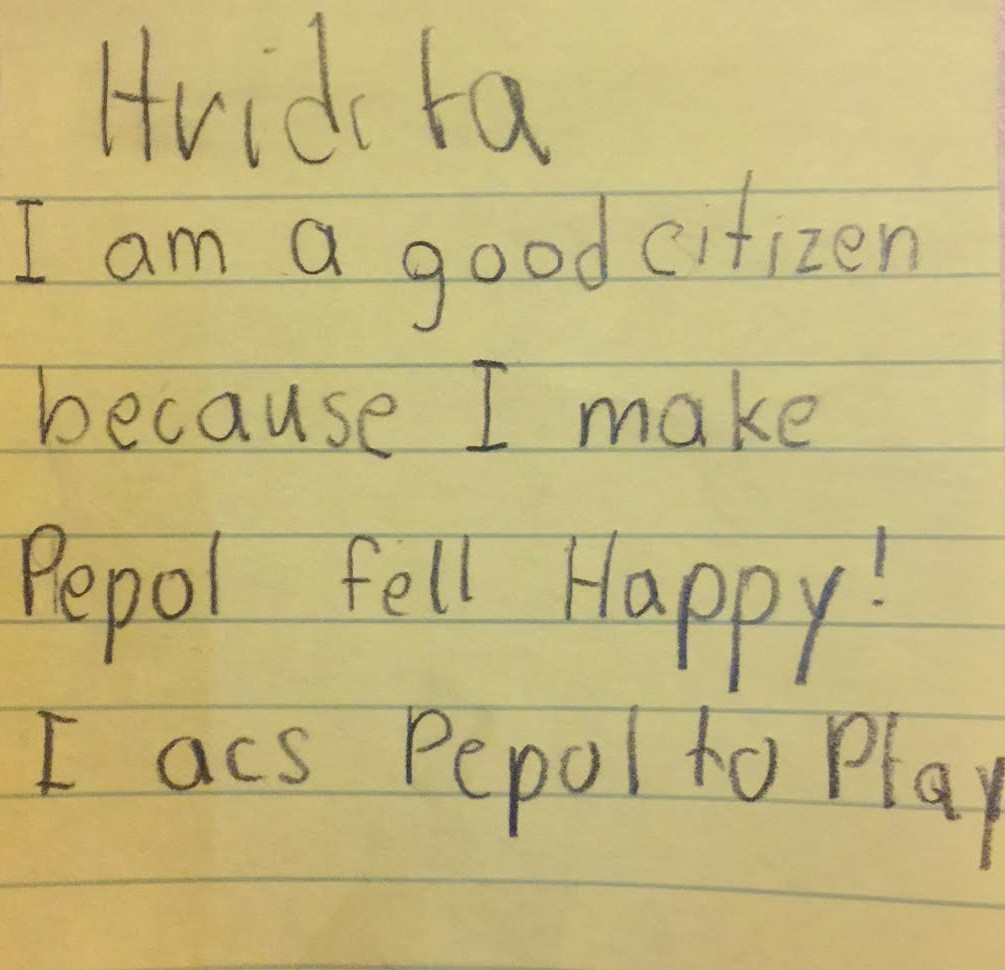 Hridita
I am a good citizen
because I make
Pepol fell Happy!
I acs Pepol to Play